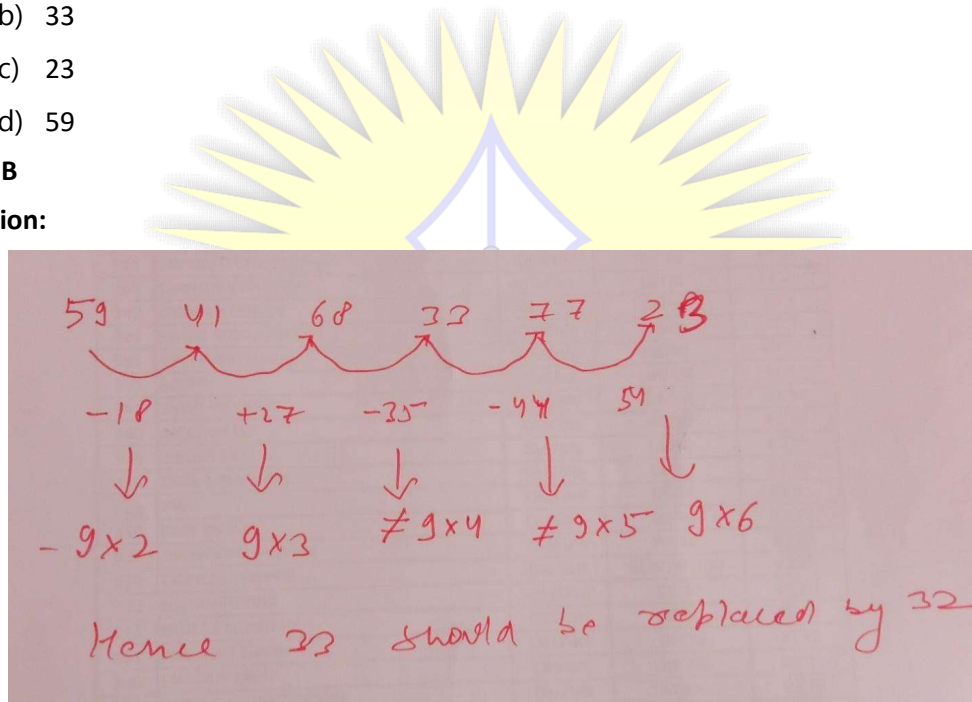 b) 33
c) 23
d) 59
B
ion:
59 41 68 33 77 23
-18 +27 -35 -44 54
-9×2 9×3 ≠9×4 ≠9×5 9×6
Hence 33 should be replaced by 32